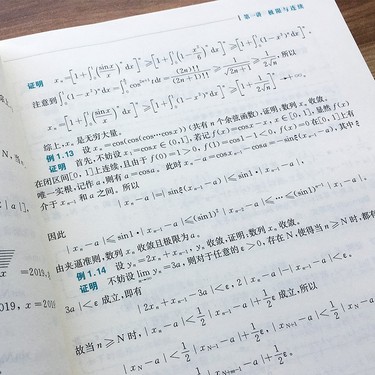 第一讲 极限与连续
证明 x_n=[1+∫_0^1(sin x/x)^n dx]^n≥[1+∫_0^1(1-x²/6)^n dx]^n≥[1+∫_0^1(1-x²)^n dx]^n.
注意到∫_0^1(1-x²)^n dx=∫_0^{π/2}cos^{2n+1}t dt=(2n)!!/(2n+1)!!≥1/√(2n+1)≥1/(2√n),所以
x_n=[1+∫_0^1(sin x/x)^n dx]^n≥[1+∫_0^1(1-x²)^n dx]^n≥[1+1/(2√n)]^n→+∞,
综上,x_n是无穷大量.
例1.13 设x_n=cos(cos(cos⋯cos x))(共有n个余弦函数),证明,数列x_n收敛.
证明 首先,不妨设x_1=cos x∈(0,1],若记f(x)=cos x-x,x∈[0,1],显然f(x)
在闭区间[0,1]上连续,且由于f(0)=1>0,f(1)=cos1-1<0,故f(x)=0在[0,1]上有
唯一实根;记作a,则有a=cos a.此时x_n-a=cos x_{n-1}-cos a=-sinξ(x_{n-1}-a),其中ξ
介于x_{n-1}和a之间.所以
|x_n-a|=|-sinξ(x_{n-1}-a)|≤sin1·|x_{n-1}-a|,
因此
|x_n-a|≤sin1·|x_{n-1}-a|≤(sin1)²|x_{n-2}-a|≤⋯≤(sin1)^{n-1}|x_1-a|,
由夹逼准则,数列x_n收敛且极限为a.
例1.14 设y_n=2x_n+x_{n-1},y_n收敛,证明,数列x_n收敛.
证明 不妨设lim_{n→∞}y_n=3a,则对于任意的ε>0,存在N,使得当n≥N时,都有
3a|<ε成立,即有
|2x_n+x_{n-1}-3a|<ε,2|x_n-a|-|x_{n-1}-a|<ε,
故当n≥N时,|x_n-a|<1/2|x_{n-1}-a|+1/2ε成立,所以
|x_N-a|<1/2|x_{N-1}-a|+1/2ε,
x=2019,
019,x=2019